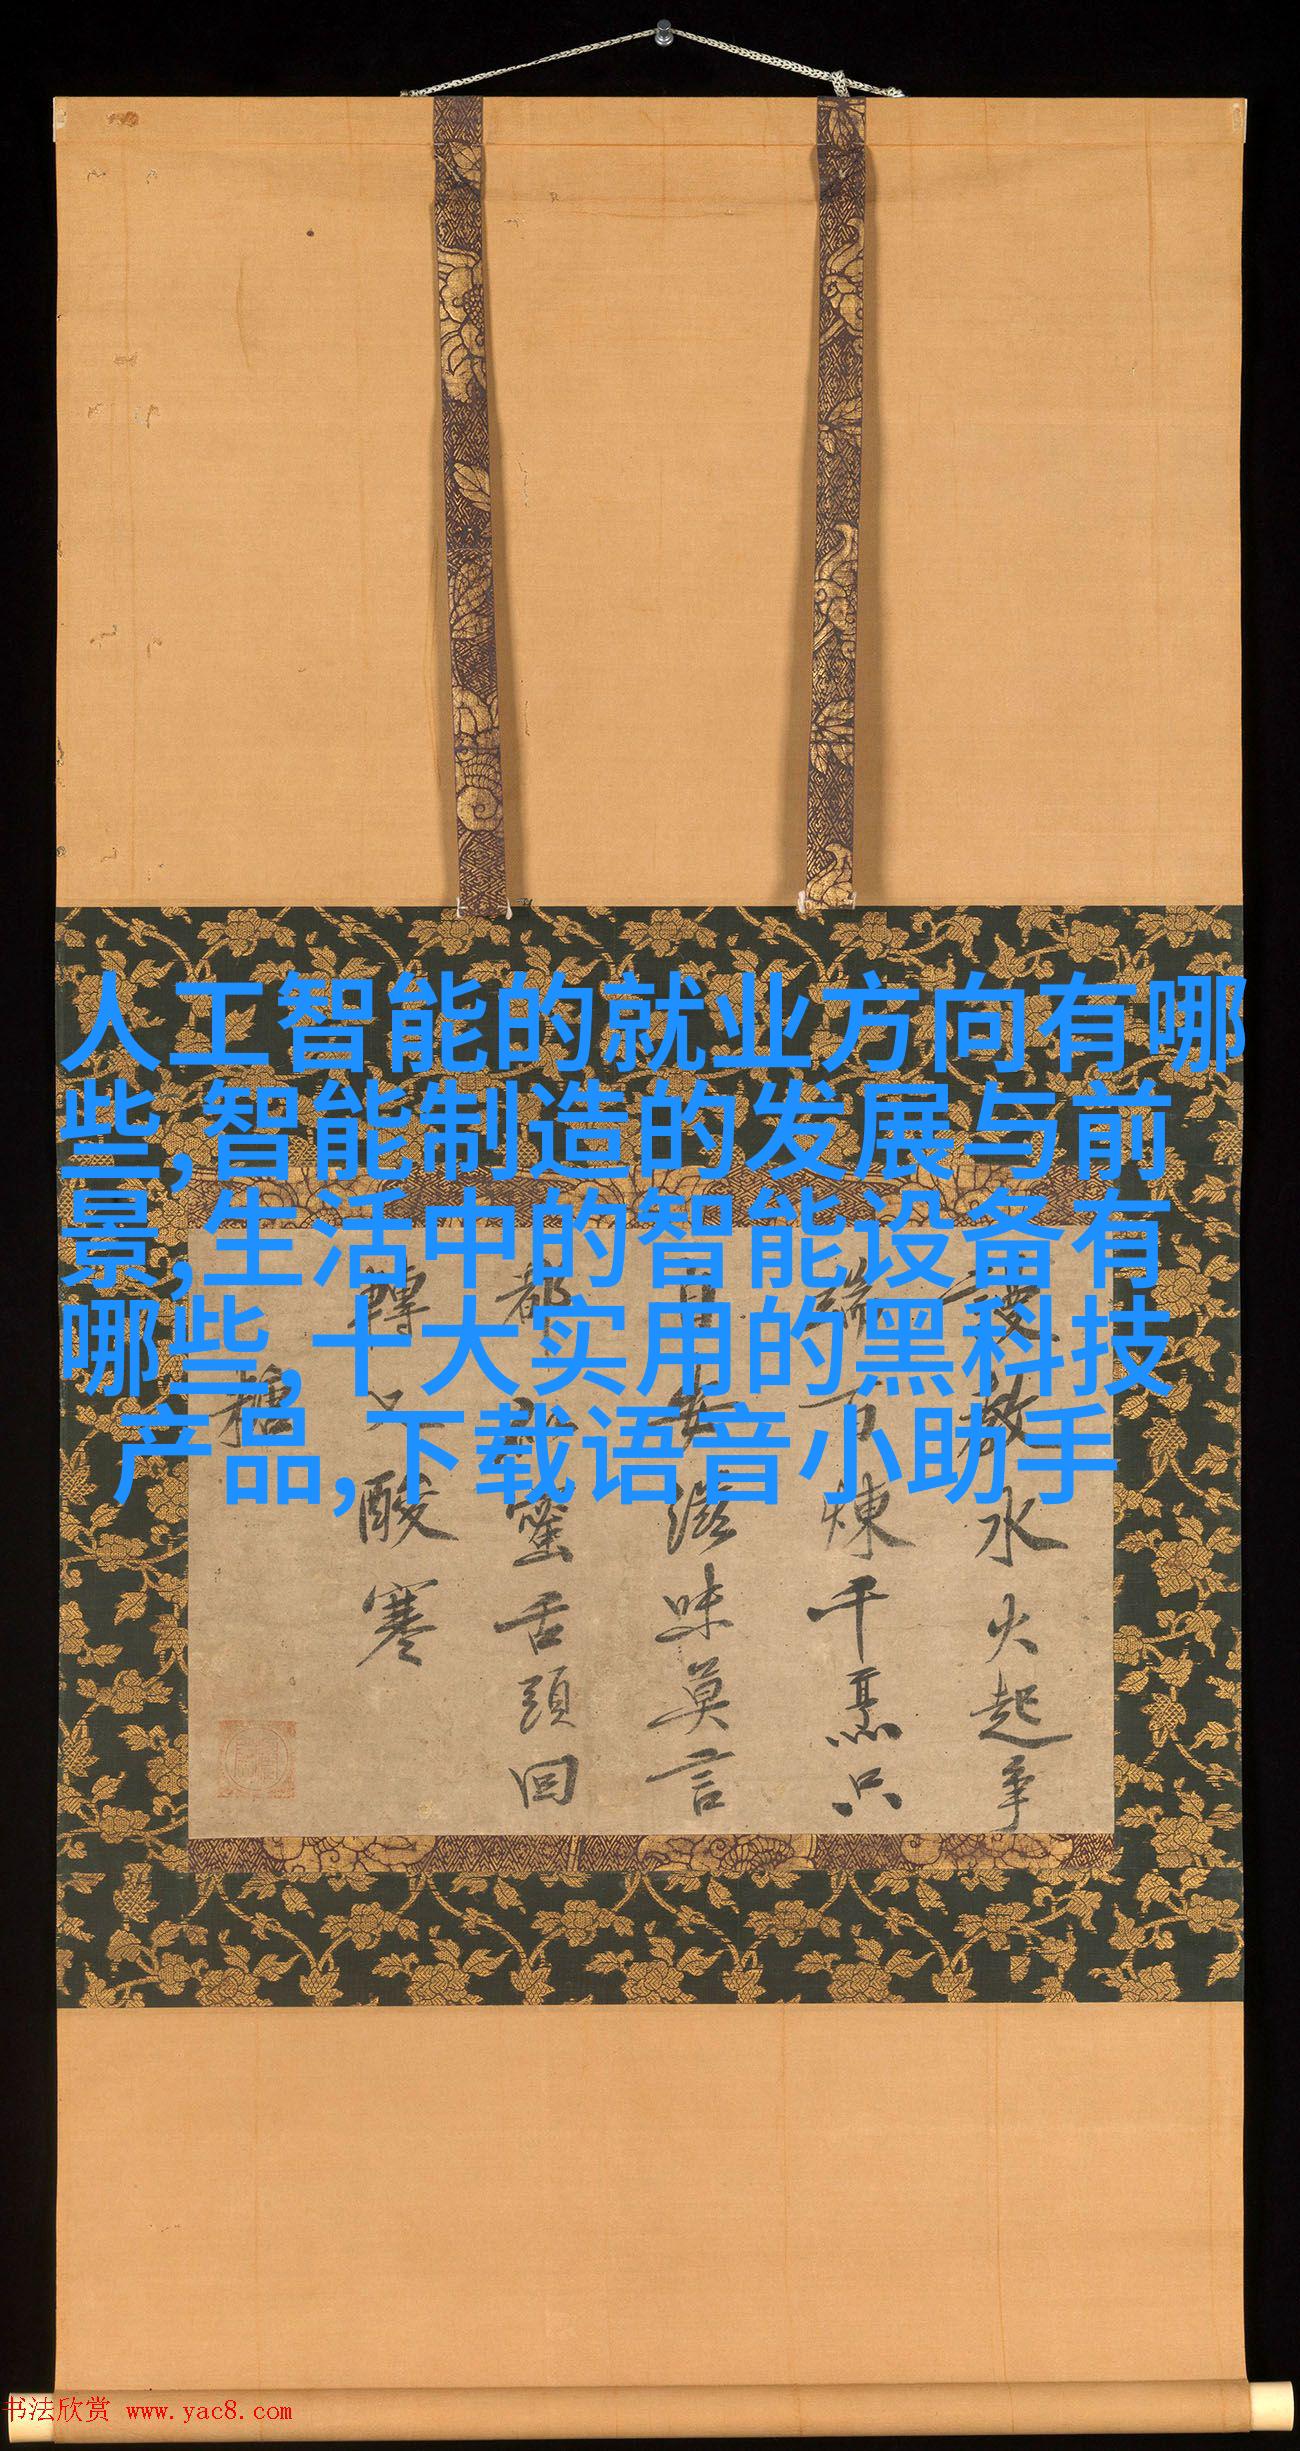 人工智能的就业方向有哪
些,智能制造的发展与前
景,生活中的智能设备有
哪些,十大实用的黑科技
产品,下载语音小助手
教水火起争
端百煉千烹只
滋味莫言
都蜜舌頭回
轉酸寒
糖
书法欣赏 www.yac8.com